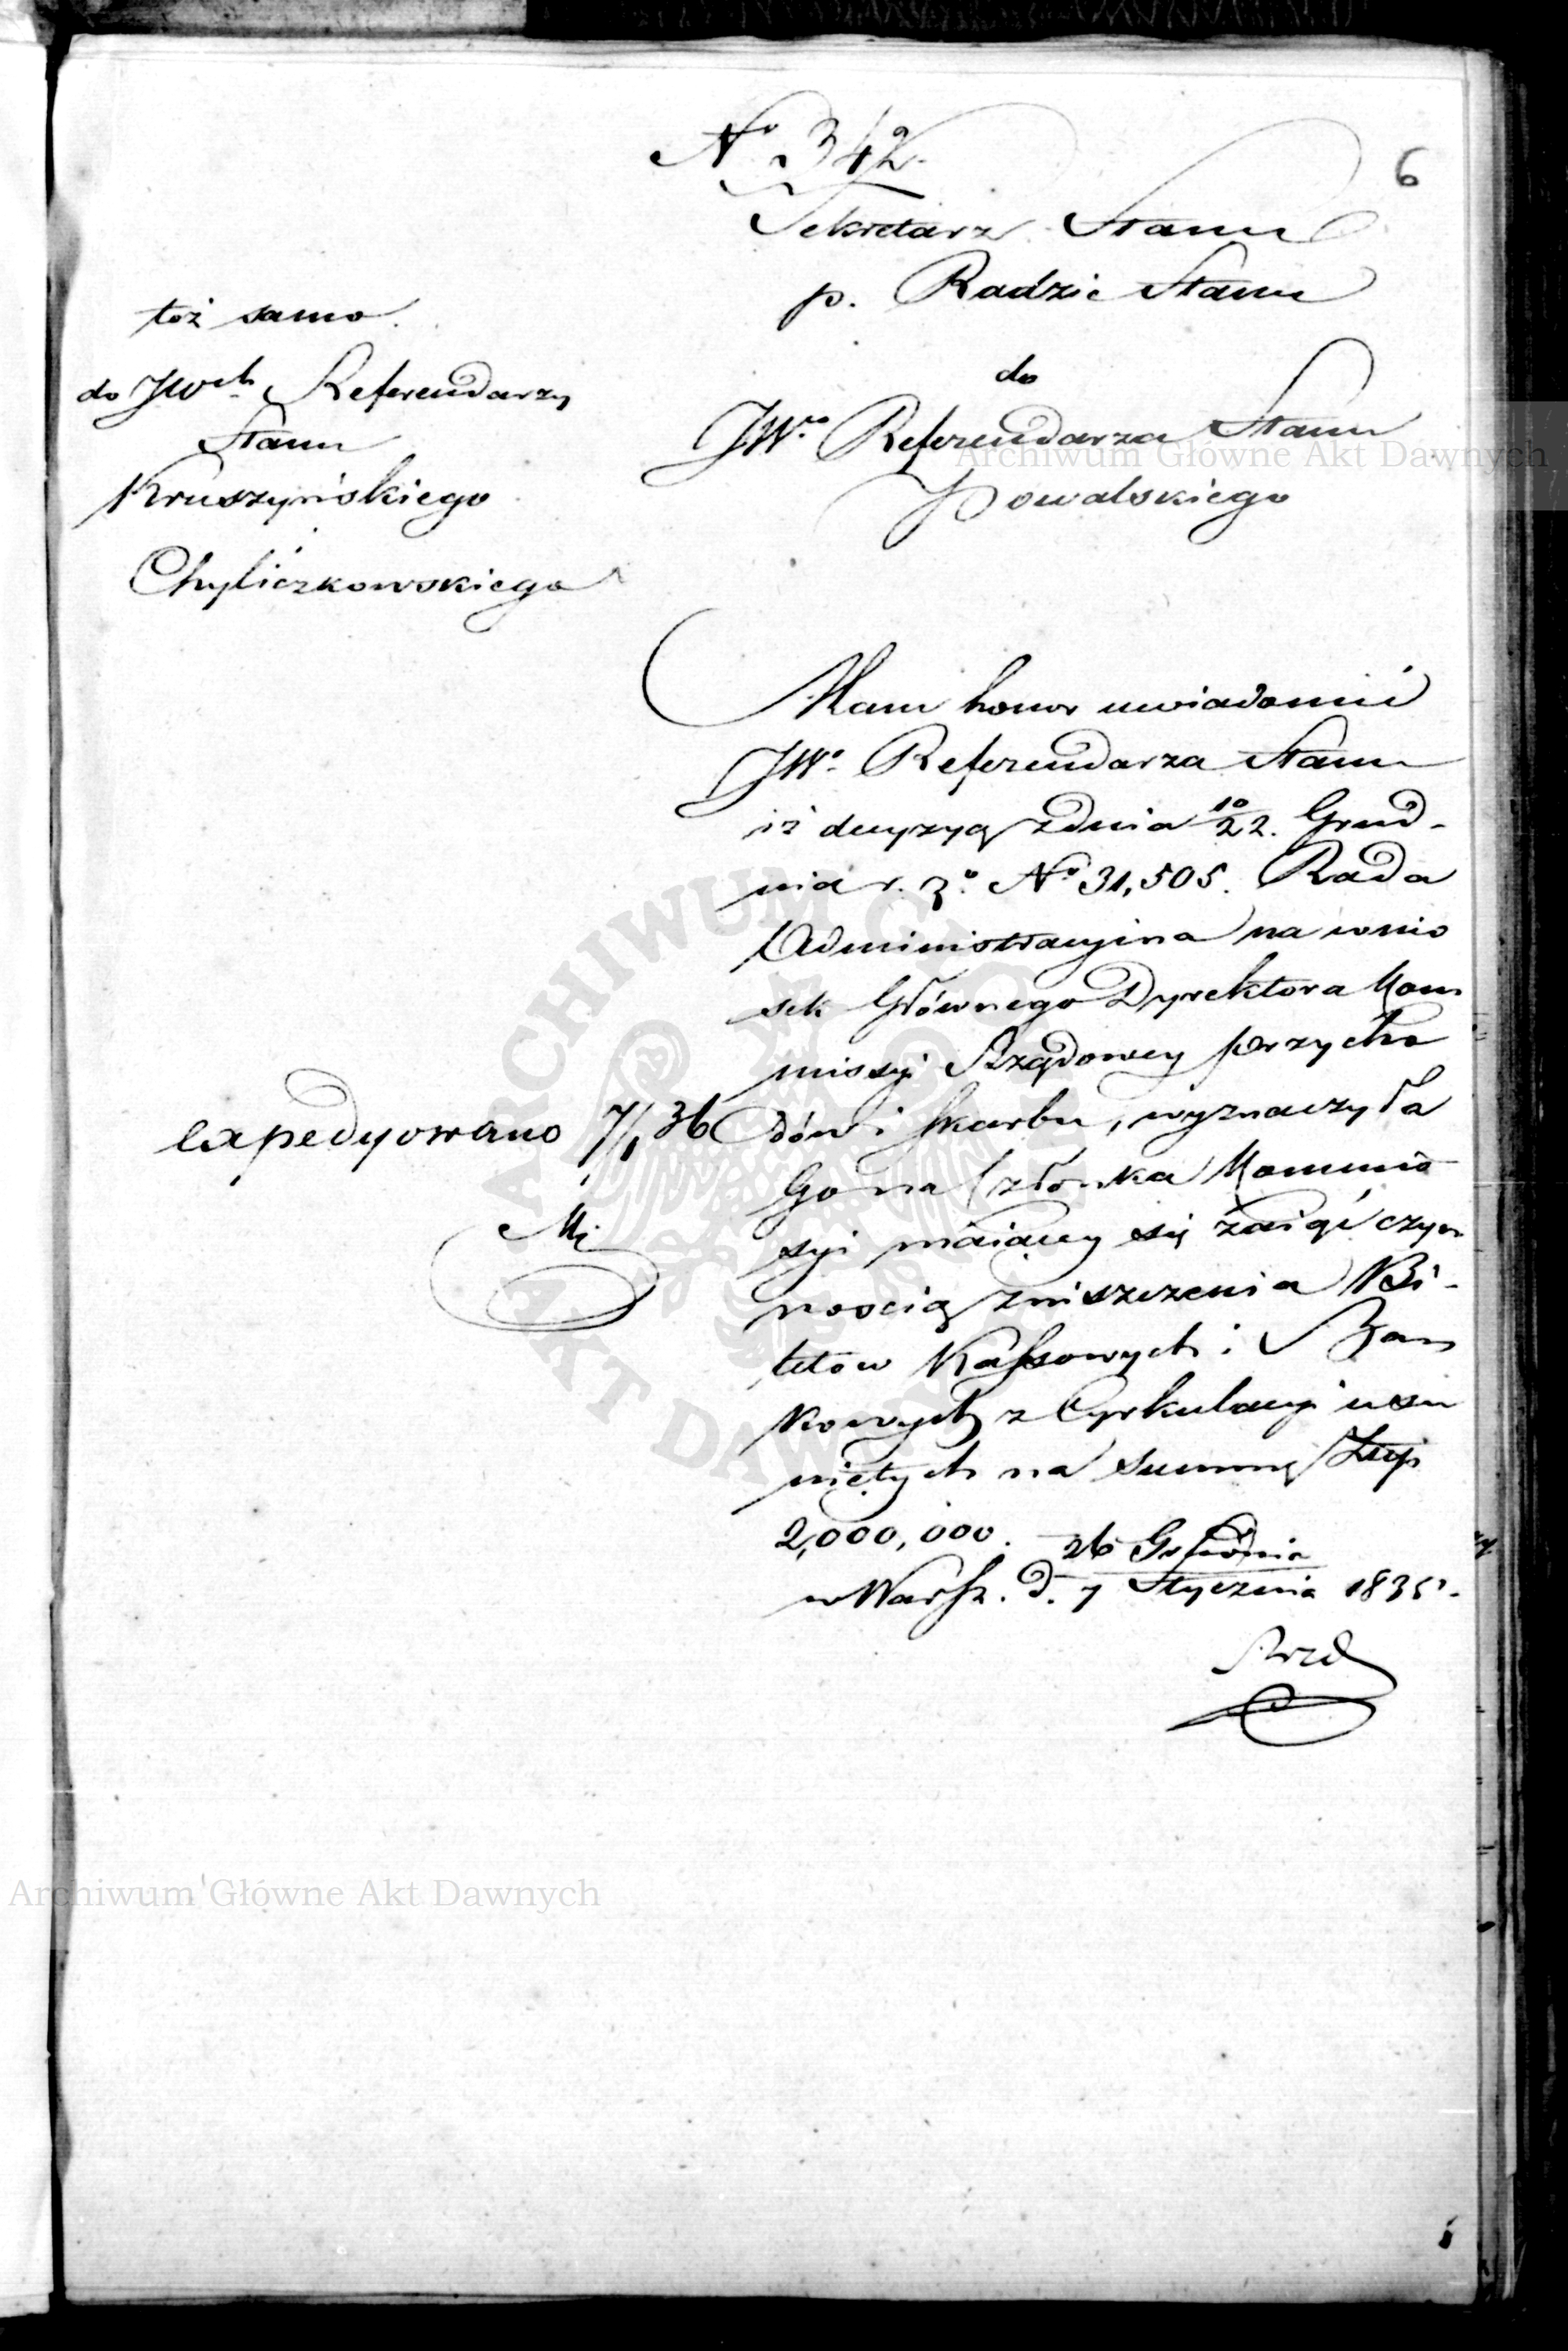 No 342.
6
Sekretarz Stanu
p. Radzie Stanu
do
JWo Referendarza Stanu
Kowalskiego
toż samo.
do JWch Referendarzy
Stanu
Kruszyńskiego
Chyliczkowskiego
Mam honor uwiadomić
JWo. Referendarza Stanu
iż decyzyą z dnia 10/22. Grud-
nia r. z. No 31,505. Rada
Administracyina na wnio
sek Głównego Dyrektora Kom
missyi Rządowey przycho
dów i skarbu, wyznaczyła
Go na Członka Kommis
syi maiącey się zaiąć czyn
nością zniszczenia Bi-
letów Kassowych i Ban
kowych z Cyrkulacyi usu
niętych na summę Złp
2,000,000.
26 Grudnia
w Warsz. d. 7 Stycznia 1835.
expedyowano 7/1 36
Archiwum Główne Akt Dawnych
ARCHIWUM GŁÓWNE
AKT DAWNYCH
Archiwum Główne Akt Dawnych